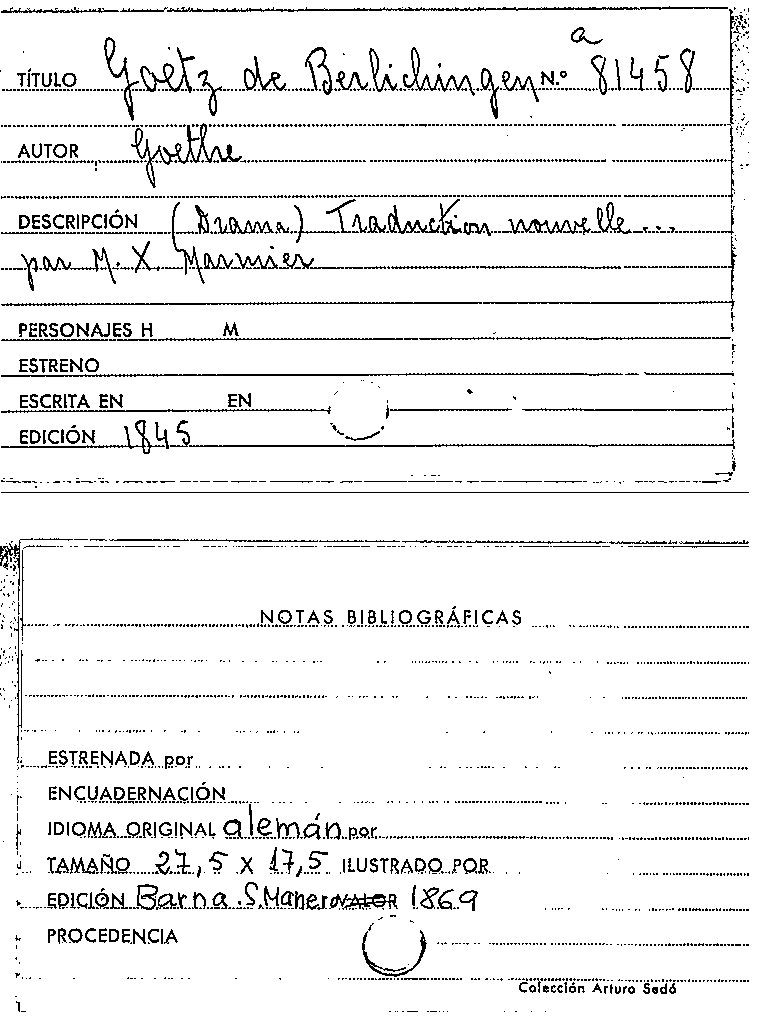 a
TÍTULO Goëtz de Berlichingen N.º 81458
AUTOR Goethe
DESCRIPCIÓN (Drama) Traduction nouvelle...
par M. X. Marmier
PERSONAJES H M
ESTRENO
ESCRITA EN EN
EDICIÓN 1845
NOTAS BIBLIOGRÁFICAS
ESTRENADA por
ENCUADERNACIÓN
IDIOMA ORIGINAL alemán por
TAMAÑO 27,5 X 17,5 ILUSTRADO POR
EDICIÓN Barna. S. Manero VALOR 1869
PROCEDENCIA
Colección Arturo Sedó